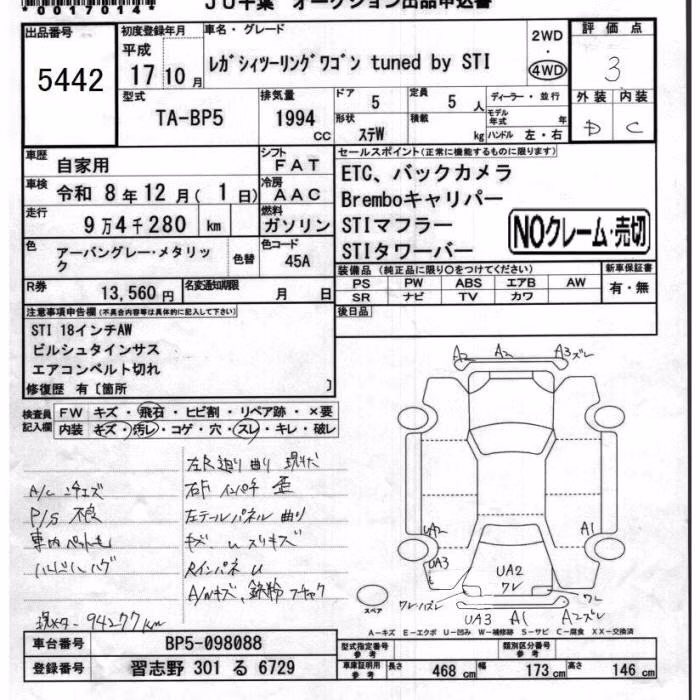 *0017014*
JU千葉 オークション出品申込書
出品番号 初度登録年月 車名・グレード 評価点
5442 平成 17 10月 レガシィツーリングワゴン tuned by STI 2WD 4WD 3
型式 排気量 ドア 定員 ディーラー・並行 外装 内装
TA-BP5 1994 CC 5 5人 モデル年式 年 D C
形状 ステW 積載 kg ハンドル 左・右
車歴 自家用 シフト FAT セールスポイント(正常に機能するものに限ります)
車検 令和 8年 12月( 1日) 冷房 AAC ETC、バックカメラ
走行 9万4千280 km 燃料 ガソリン Bremboキャリパー
STIマフラー
STIタワーバー
NOクレーム・売切
色 アーバングレー・メタリック 色替 色コード 45A
装備品(純正品に限り○をつけてください) 新車保証書
PS PW ABS エアB AW 有・無
SR ナビ TV カワ
R券 13,560円 名変通知期限 月 日
後日品
注意事項申告欄(不具合内容等は具体的に記入して下さい)
STI 18インチAW
ビルシュタインサス
エアコンベルト切れ
修復歴 有〔箇所 〕
検査員記入欄 FW キズ・飛石・ヒビ割・リペア跡・×要
内装 キズ・汚レ・コゲ・穴・スレ・キレ・破レ
左R廻り曲り
A/C
P/S 不良
左テールパネル曲り
Rインパネ U
A/Wキズ、
現メーター 94277km
A2 A2 A3ズレ
UA2 A1
UA3
UA2
ワレ
ワレ
スペア
UA3 A1 A2ズレ
A-キズ E-エクボ U-凹み W-補修跡 S-サビ C-腐食 XX-交換済
車台番号 BP5-098088 型式指定番号 参考 類別区分番号 参考
登録番号 習志野 301 る 6729 車庫証明用 参考 長さ 468 cm 幅 173 cm 高さ 146 cm